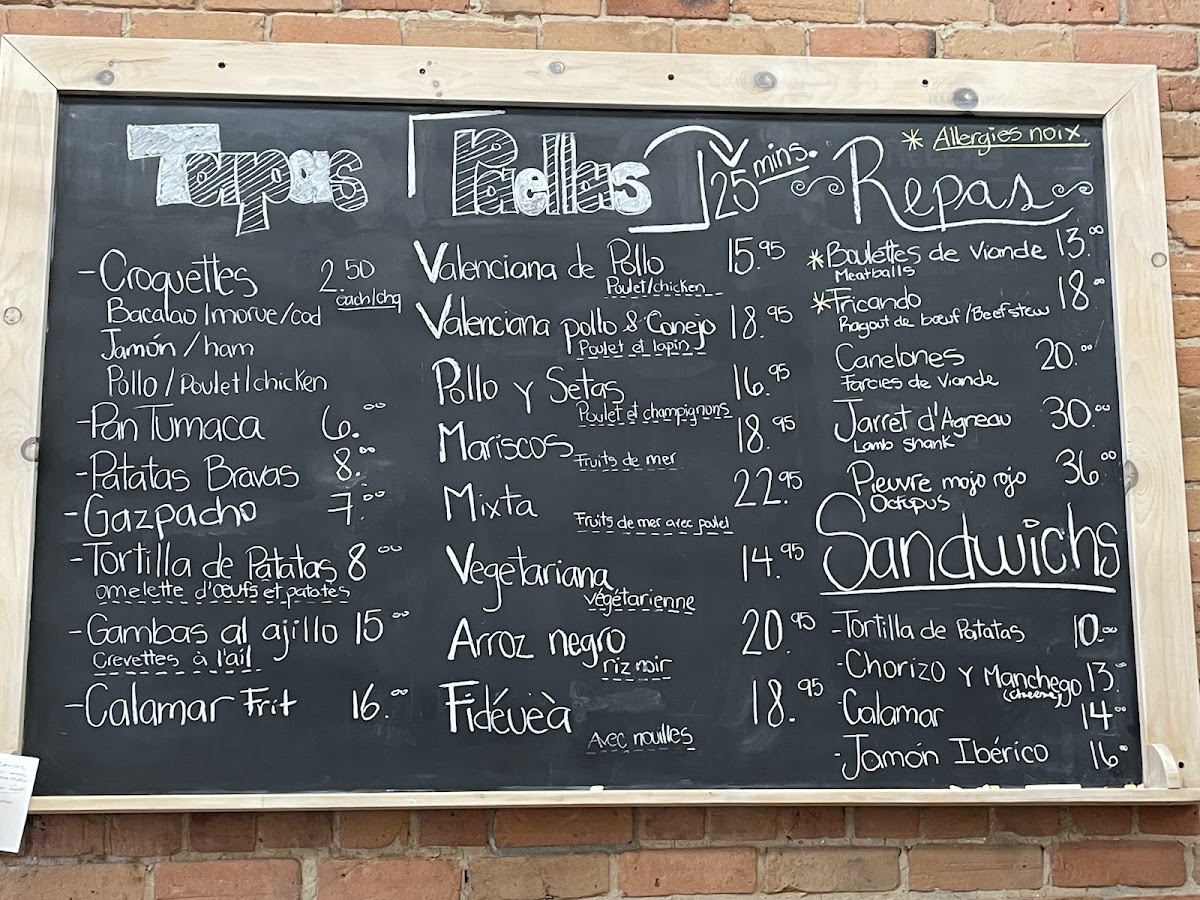 Tapas
-Croquettes 2.50
each/chq
Bacalao/morue/cod
Jamón/ham
Pollo/Poulet/chicken
-Pan Tumaca 6.00
-Patatas Bravas 8.00
-Gazpacho 7.00
-Tortilla de Patatas 8.00
omelette d'œufs et patates
-Gambas al ajillo 15.00
Crevettes à l'ail
-Calamar Frit 16.00
Paellas 25 mins.
Valenciana de Pollo 15.95
Poulet/chicken
Valenciana pollo & Conejo 18.95
Poulet et lapin
Pollo y Setas 16.95
Poulet et champignons
Mariscos 18.95
Fruits de mer
Mixta 22.95
Fruits de mer avec poulet
Vegetariana 14.95
végétarienne
Arroz negro 20.95
riz noir
Fidéueà 18.95
Avec nouilles
* Allergies noix
Repas
*Boulettes de Viande 13.00
Meatballs
*Fricando 18.00
Ragout de bœuf/Beef stew
Canelones 20.00
Farcies de Viande
Jarret d'Agneau 30.00
Lamb shank
Pieuvre mojo rojo 36.00
Octopus
Sandwichs
-Tortilla de Patatas 10.00
-Chorizo y Manchego 13.00
(cheese)
-Calamar 14.00
-Jamón Ibérico 16.00